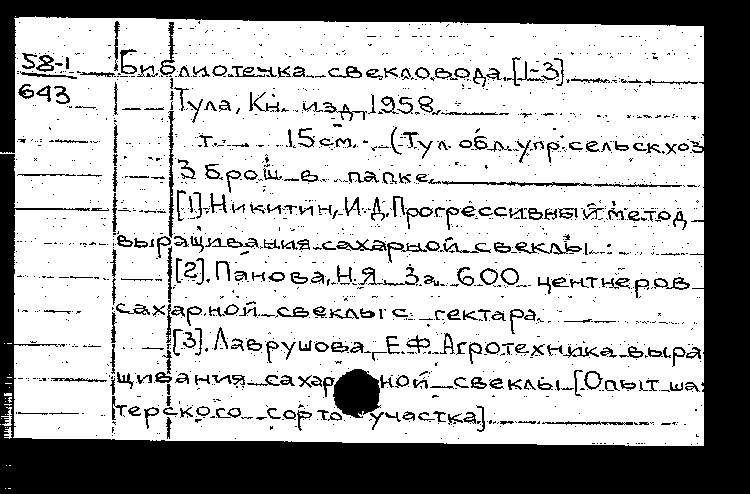 58-1
643
Библиотечка свекловода [1-3]
Тула, Кн. изд, 1958.
т. 15см. (Тул. обл. упр. сельск. хоз
3 брош в папке
[1]. Никитин, И.Д. Прогрессивный метод
выращивания сахарной свеклы.
[2]. Панова, Н.Я. За 600 центнеров
сахарной свеклы с гектара.
[3]. Лаврушова, Е.Ф. Агротехника выра
щивания сахарной свеклы [Опыт ша
терского сортоучастка]